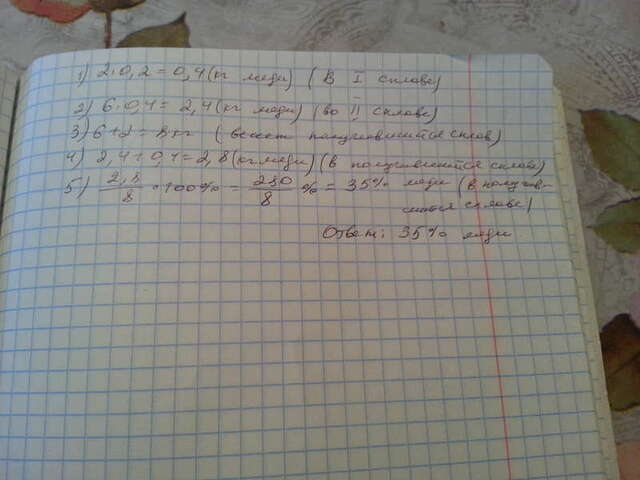 1) 2·0,2 = 0,4 (кг меди) (в I сплаве)
2) 6·0,4 = 2,4 (кг меди) (во II сплаве)
3) 6+2 = 8 кг (весит получившийся сплав)
4) 2,4+0,4 = 2,8 (кг меди) (в получившийся сплав)
5) 2,8/8 · 100% = 280/8 % = 35% меди (в получив-
шийся сплаве)
Ответ: 35% меди